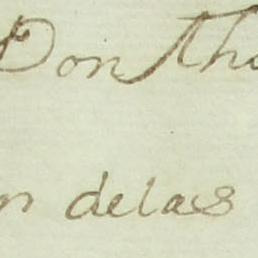 Don Tho
n delas